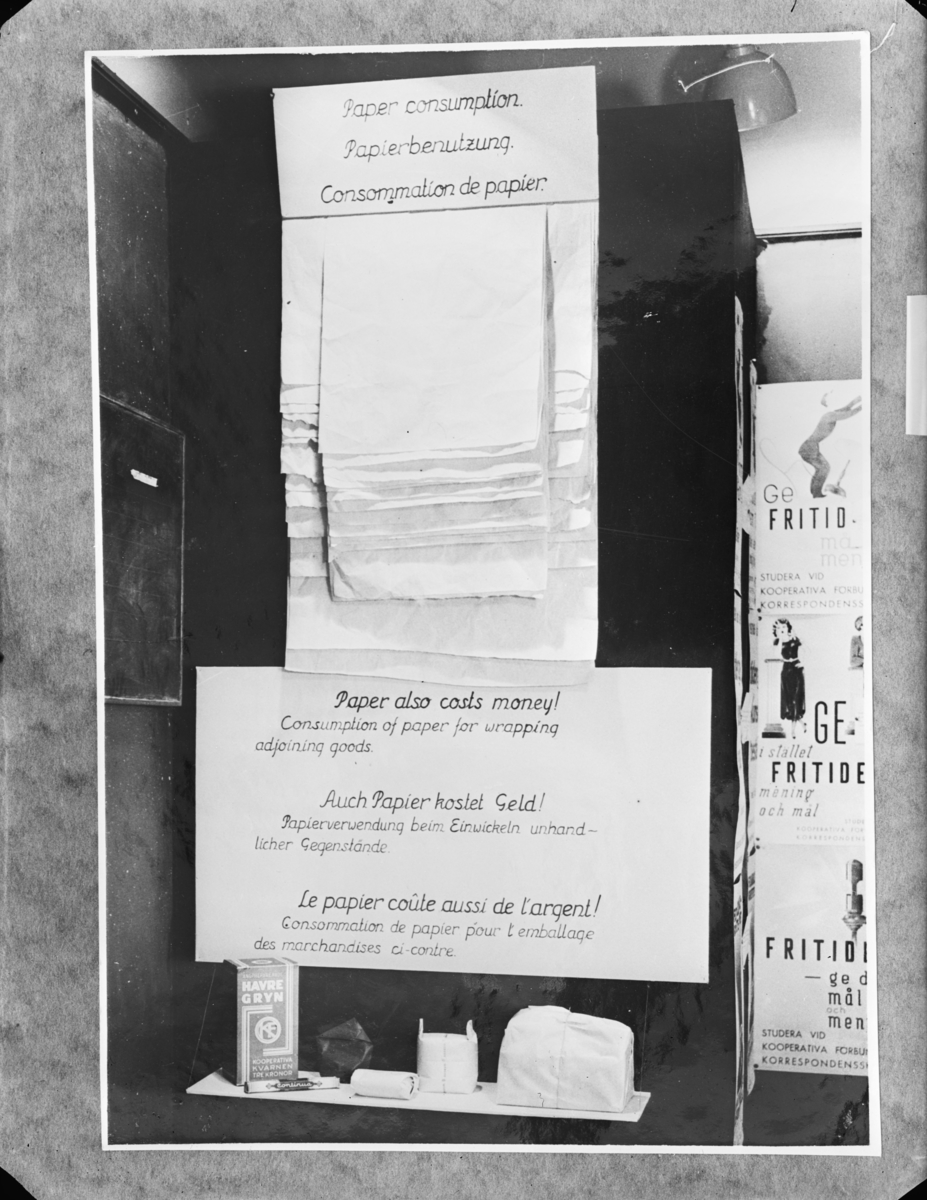 Paper consumption.
Papierbenutzung.
Consommation de papier.
Paper also costs money!
Consumption of paper for wrapping
adjoining goods.
Auch Papier kostet Geld!
Papierverwendung beim Einwickeln unhand-
licher Gegenstände.
Le papier coûte aussi de l'argent!
Consommation de papier pour l'emballage
des marchandises ci-contre.
HAVRE
GRYN
KF
KOOPERATIVA
KVARNEN
TRE KRONOR
Ge
FRITID
STUDERA VID
KOOPERATIVA FÖRBU
KORRESPONDENSS
GE
i stället
FRITIDE
mening
och mål
KOOPERATIVA FÖR
KORRESPONDENS
FRITIDE
— ge d
mål
och
men
STUDERA VID
KOOPERATIVA FÖRBU
KORRESPONDENSS